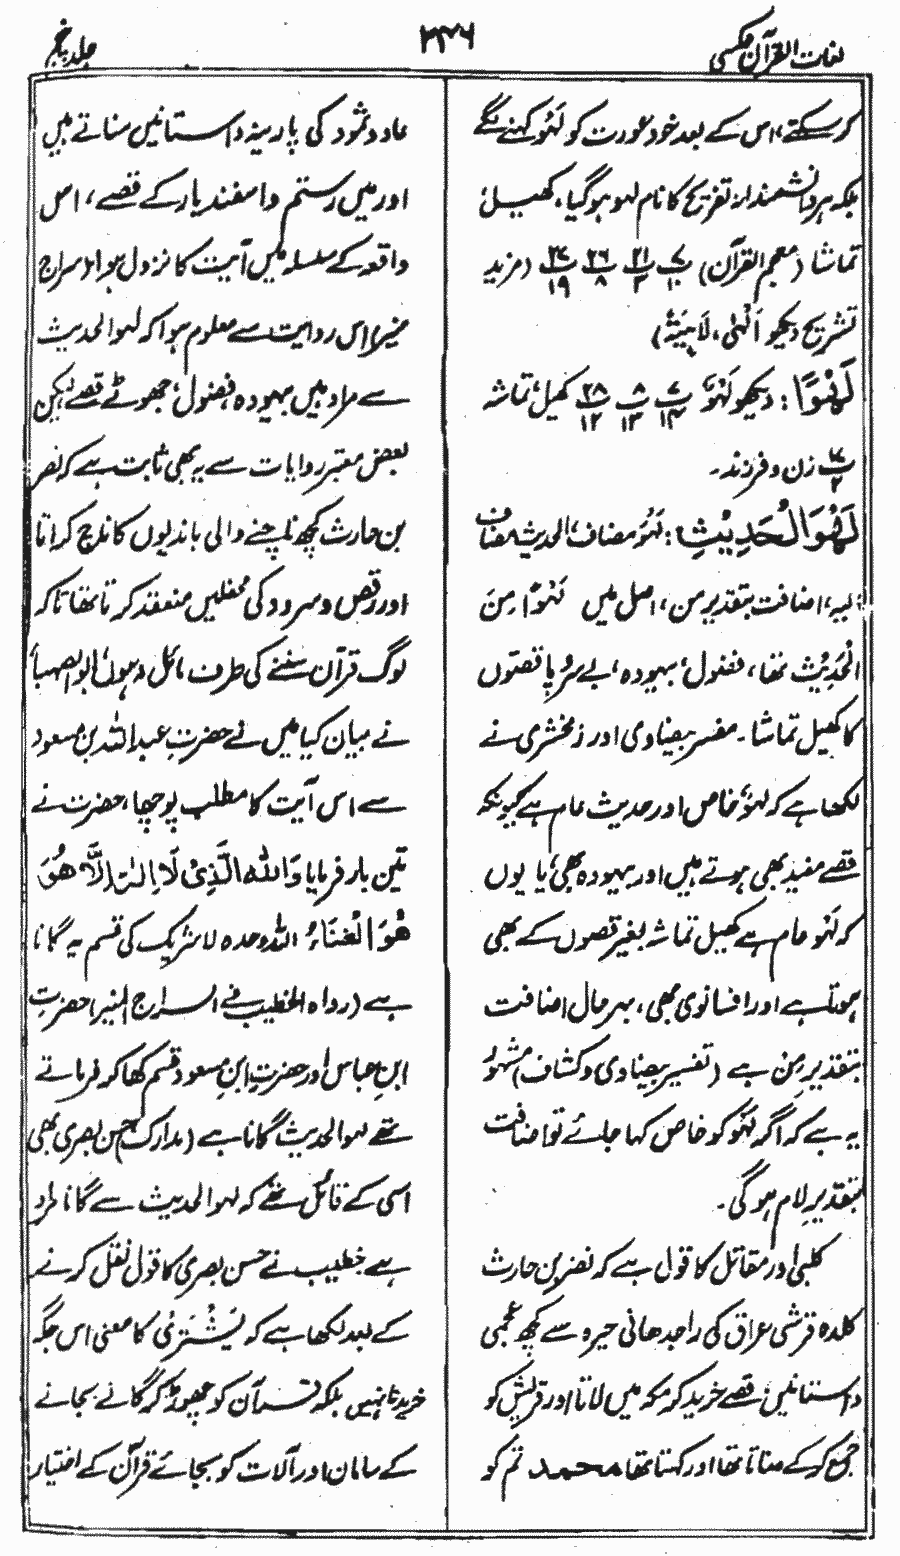 لغات القرآن عکسی
۲۴۶
جلد پنجم
کر سکتے، اس کے بعد خود عورت کو لَہْو کہنے لگے
بلکہ ہر دانشمندانہ تفریح کا نام لہو ہوگیا، کھیل،
تماشا (معجم القرآن) ۷/۱۰ ۲۱/۲ ۲۶/۸ ۲۷/۱۹ (مزید
تشریح دیکھو اَلْہٰی، لَاہِیَۃً)
لَہْوًا: دیکھو لَہْوٌ ۷/۱۴ ۸/۱۳ ۲۸/۱۲ کھیل، تماشہ
۱۷/۲ زن و فرزند۔
لَہْوَ الْحَدِیْثِ: لَہْوَ مضاف، الحدیث مضاف
الیہ، اضافت بتقدیر من، اصل میں لَہْوًا مِنَ
الْحَدِیْثِ تھا، فضول، بیہودہ، بے سروپا قصّوں
کا کھیل تماشا۔ مفسر بیضاوی اور زمخشری نے
لکھا ہے کہ لہو، خاص اور حدیث عام ہے کیونکہ
قصے مفید بھی ہوتے ہیں اور بیہودہ بھی، یا یوں
کر لَہْو عام ہے کھیل تماشہ بغیر قصوں کے بھی
ہوتا ہے اور افسانوی بھی، بہر حال اضافت
بتقدیر مِنْ ہے (تفسیر بیضاوی و کشاف) مشہور
یہ ہے کہ اگر لَہْو کو خاص کہا جائے تو اضافت
بتقدیرِ لام ہوگی۔
کلبی اور مقاتل کا قول ہے کہ نضر بن حارث
کلدہ قرشی عراق کی راجدھانی حیرہ سے کچھ عجمی
داستانیں، قصے خرید کر مکہ میں لاتا اور قریش کو
جمع کر کے سناتا تھا اور کہتا تھا محمد تم کو
عاد و ثمود کی پارینہ داستانیں سناتے ہیں
اور میں رستم و اسفندیار کے قصے، اس
واقعہ کے سلسلہ میں آیت کا نزول ہوا (سراج
منیر) اس روایت سے معلوم ہوا کہ لہوا لحدیث
سے مراد ہیں بیہودہ، فضول، جھوٹے قصے لیکن
بعض معتبر روایات سے یہ بھی ثابت ہے کہ نضر
بن حارث کچھ ناچنے والی باندیوں کا ناچ کراتا
اور رقص و سرود کی محفلیں منعقد کرتا تھا تاکہ
لوگ قرآن سننے کی طرف مائل نہ ہوں، ابو الصہباء
نے بیان کیا میں نے حضرتِ عبد اللہ بن مسعود
سے اس آیت کا مطلب پوچھا، حضرت نے
تین بار فرمایا وَاللہِ الَّذِیْ لَا اِلٰہَ اِلَّا ھُوَ
ھُوَ الْغِنَاءُ اللہ وحدہ لا شریک کی قسم یہ گانا
ہے (رواہ الخطیب فی السراج المنیر) حضرتِ
ابنِ عباس اور حضرتِ ابنِ مسعود قسم کھا کر فرماتے
تھے لہوا لحدیث گانا ہے (مدارک) حسن بصری بھی
اسی کے قائل تھے کہ لہوا لحدیث سے گانا مراد
ہے خطیب نے حسن بصری کا قول نقل کرنے
کے بعد لکھا ہے کہ یَشْتَرِیْ کا معنی اس جگہ
خریدنا نہیں بلکہ قرآن کو چھوڑ کر گانے بجانے
کے سامان اور آلات کو بجائے قرآن کے اختیار